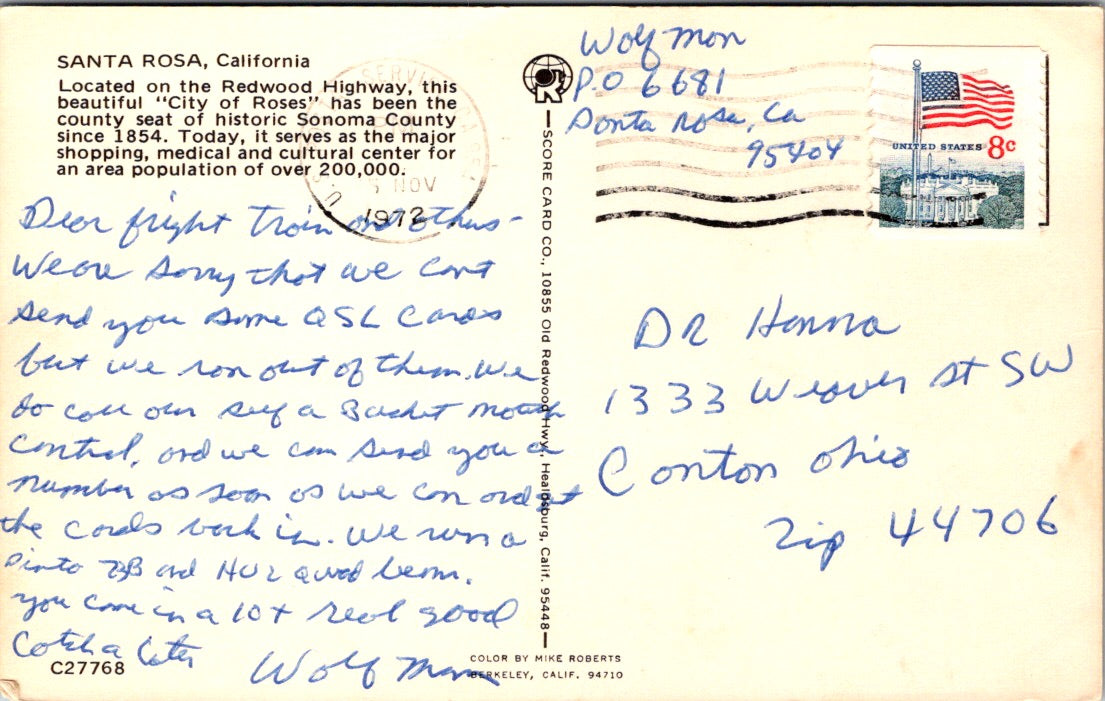 SANTA ROSA, California
Located on the Redwood Highway, this
beautiful "City of Roses" has been the
county seat of historic Sonoma County
since 1854. Today, it serves as the major
shopping, medical and cultural center for
an area population of over 200,000.
NOV
1972
Dear fright train and others-
We are sorry that we cant
send you some QSL Cards
but we ran out of them. We
do call our self a Bucket mouth
control, and we can send you a
number as soon as we can order
the cards back in. We run a
Pinto and quad beam.
you come in a 10+ real good
Cotch a later
Wolf Man
C27768
SCORE CARD CO., 10855 Old Redwood Hwy., Healdsburg, Calif. 95448
COLOR BY MIKE ROBERTS
BERKELEY, CALIF. 94710
Wolf Man
P.O 6681
Santa Rosa, Ca
95404
UNITED STATES 8c
DR Hanna
1333 Weaver St SW
Canton Ohio
Zip 44706